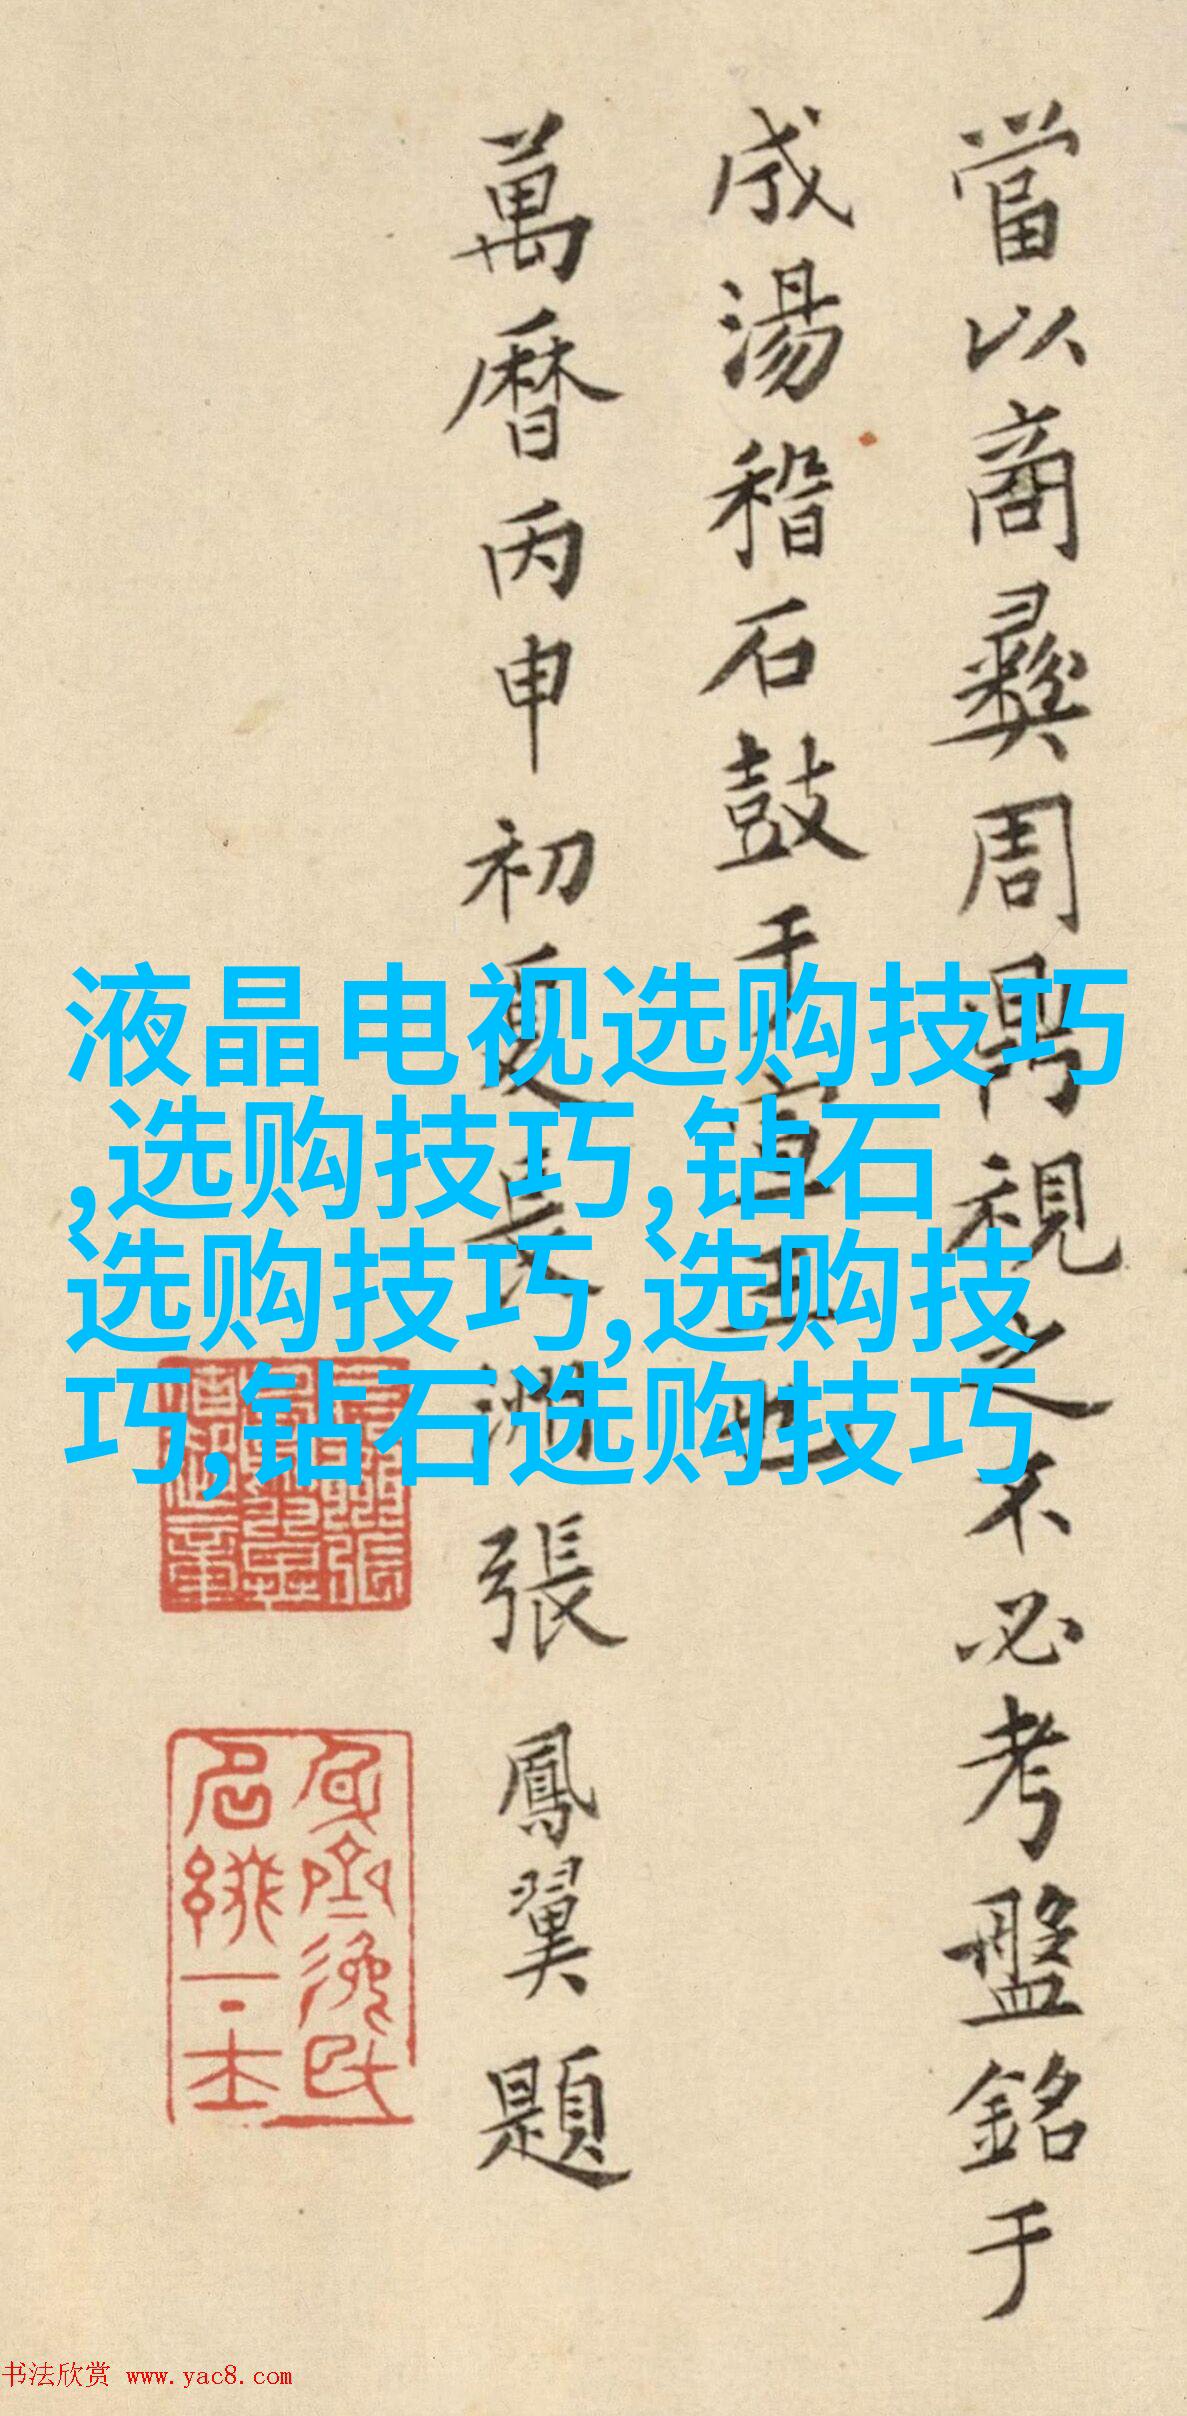 當以商彝周鼎視之不必考盤銘于
成湯稽石鼓于宣王也
萬曆丙申初夏長洲張鳳翼題
液晶电视选购技巧
,选购技巧,钻石
选购技巧,选购技
巧,钻石选购技巧
书法欣赏 www.yac8.com